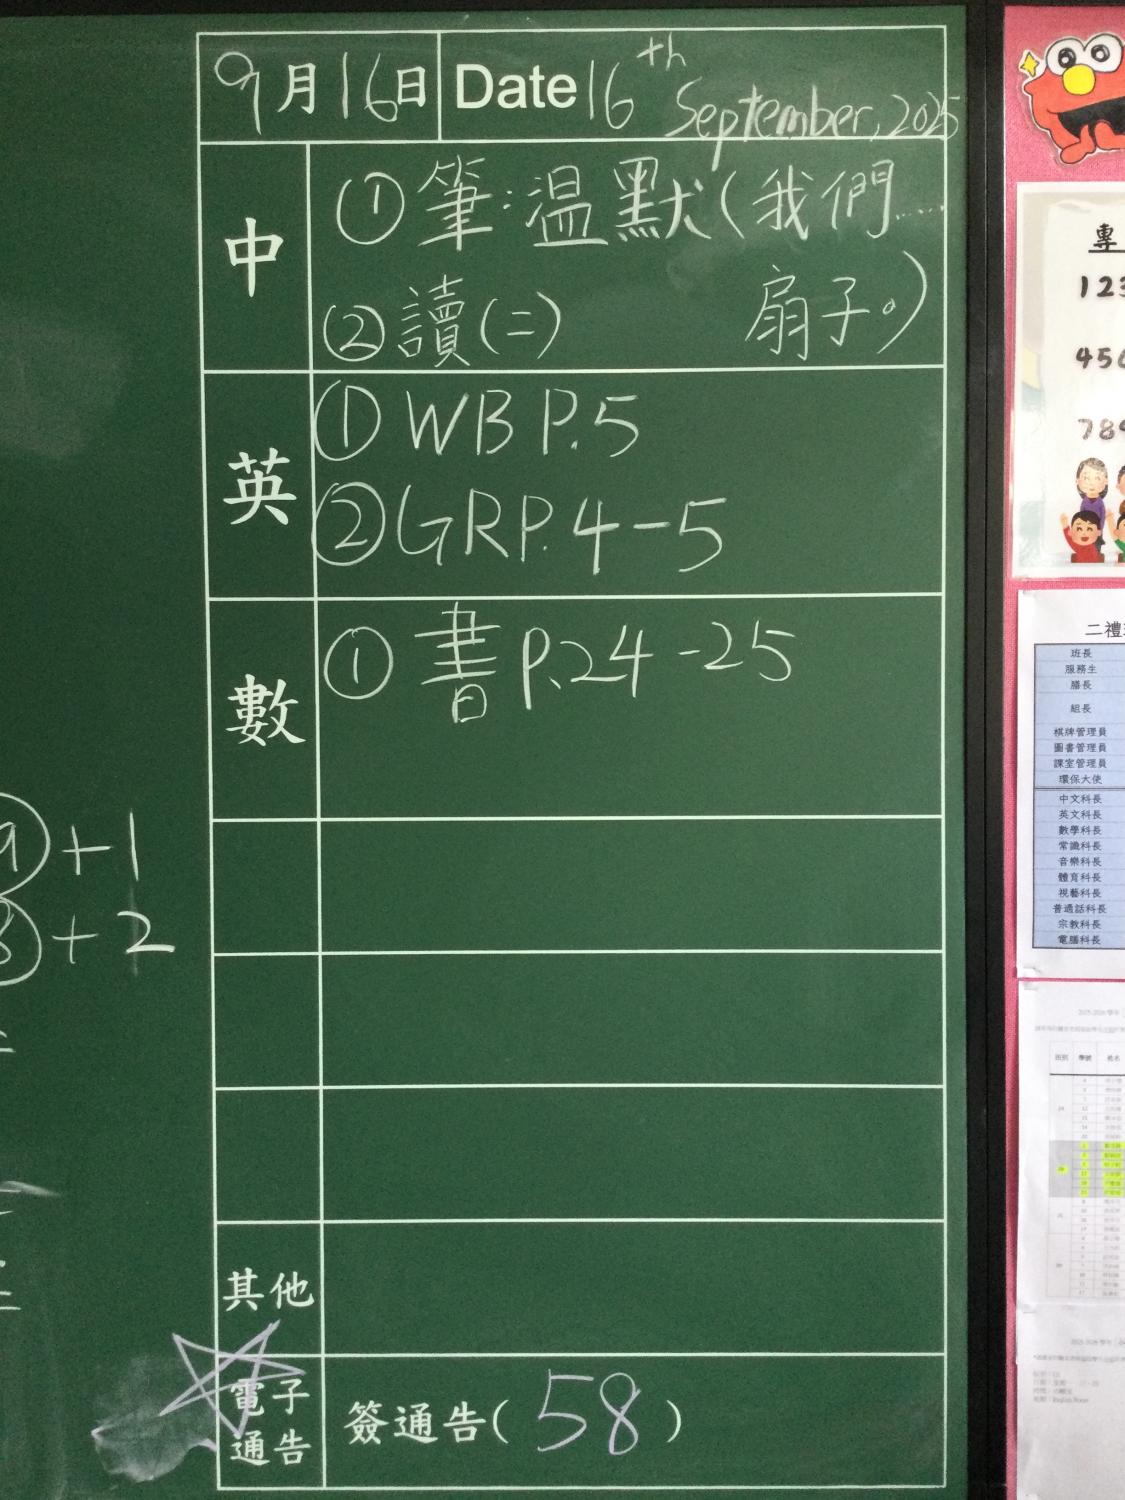 9月16日 Date 16th September, 2025
中 ①筆：温默(我們……
②讀(二) 扇子。)
英 ①WB P.5
②GR P.4-5
數 ①書P.24-25
其他
電子通告 簽通告(58)
+1
+2
123
456
班長
服務生
膳長
組長
棋牌管理員
圖書管理員
課室管理員
環保大使
中文科長
英文科長
數學科長
常識科長
音樂科長
體育科長
視藝科長
普通話科長
宗教科長
電腦科長
班別 學號 姓名